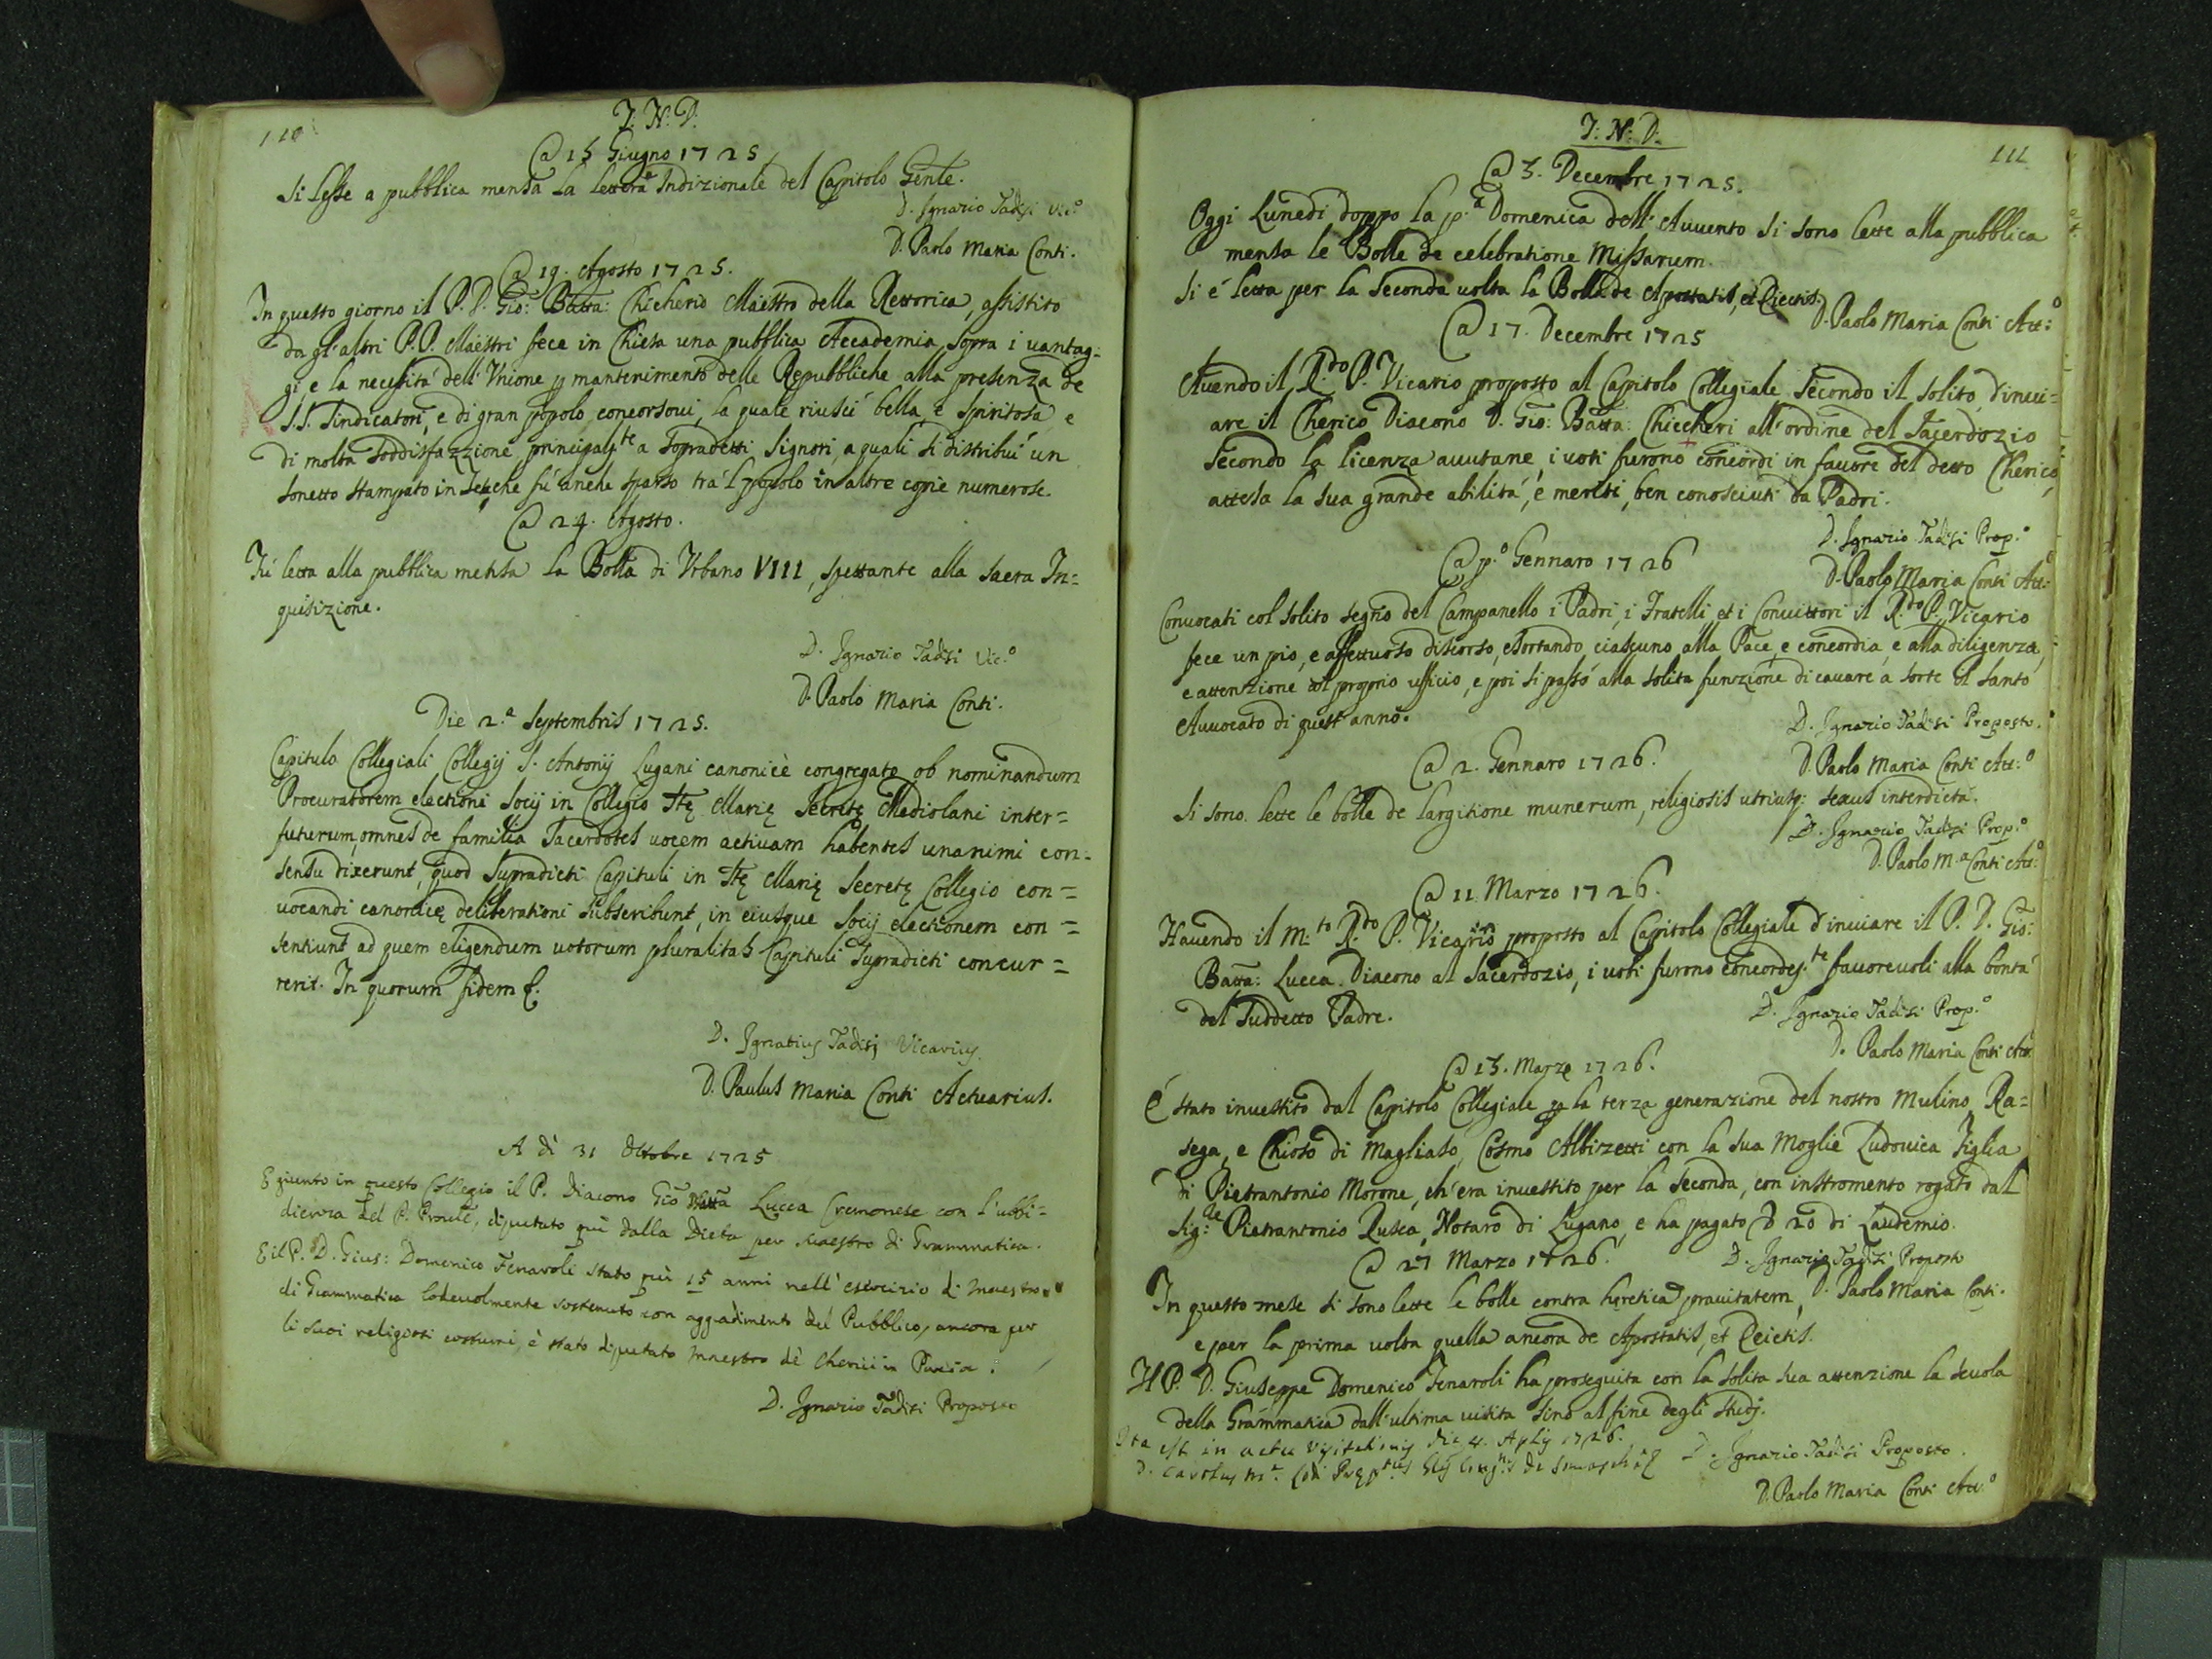 110
J: N: D:
@ 15 Giugno 1725
Si lesse a pubblica mensa la lettera Indizionale del Capitolo Genle.
D. Ignazio Tadisi Vic.o
D. Paolo Maria Conti.
@ 19. Agosto 1725.
In questo giorno il P. D. Gio: Batta: Chicherio Maestro della Rettorica, assistito
da gl'altri P.P. Maestri fece in Chiesa una pubblica Accademia sopra i vantag:
gi, e la necessità dell'Unione p mantenimento delle Repubbliche alla presenza de
S.S. Sindicatori, e di gran popolo concorsovi, la quale riuscì bella, e spiritosa e
di molta soddisfazzione principalte a sopradetti Signori, a quali si distribuì un
sonetto stampato in che fù anche sparso trà'l popolo in altre copie numerose.
@ 24. Agosto.
Fù letta alla pubblica mensa la Bolla di Urbano VIII, spettante alla sacra In=
quisizione.
D. Ignazio Tadisi Vic.o
D. Paolo Maria Conti.
Die 2.a Septembris 1725.
Capitulo Collegiali Collegij S. Antonij Lugani canonicè congregato ob nominandum
Procuratorem electioni Socij in Collegio Stę Marię Secretę Mediolani inter=
futurum, omnes de familia Sacerdotes vocem activam habentes unanimi con=
sensu dixerunt, quod supradicti Capituli in Stę Marię Secretę Collegio con=
vocandi canonicę deliberationi subscribunt, in eiusque Socij electionem con=
sentiunt ad quem eligendum votorum pluralitas Capituli supradicti concur=
rerit. In quorum fidem &.
D. Ignatius Tadisj Vicarius.
D. Paulus Maria Conti Actuarius.
A dì 31 Ottobre 1725
E giunto in questo Collegio il P. Diacono Gio Batta Lucca Cremonese con l'ubbi=
dienza del P. Proule, diputato quì dalla Dieta per Maestro di Grammatica.
E il P. D. Gius: Domenico Fenaroli stato quì 15 anni nell'esercizio di Maestro
di Grammatica lodevolmente sostenuto con aggradimento del Pubblico, ancora per
li suoi religiosi costumi, è stato diputato Maestro dè Cherici in Pavia.
D. Ignazio Tadisi Proposto
J: N: D:
111
@ 3. Decembre 1725.
Oggi Lunedì doppo la p.a Domenica dell'Avvento si sono lette alla pubblica
mensa le Bolle de celebratione Missarum.
Si è letta per la seconda volta la Bolla de Apostatis, et Eiectis.
D. Paolo Maria Conti Att:o
@ 17. Decembre 1725
Avendo il R.do P. Vicario proposto al Capitolo Collegiale secondo il solito d'invi=
are il Cherico Diacono D. Gio: Batta: Chiccheri all'ordine del Sacerdozio
secondo la licenza avutane, i voti furono concordi in favore del detto Cherico,
attesa la sua grande abilità, e meriti, ben conosciuti da Padri.
D. Ignazio Tadisi Prop.o
D. Paolo Maria Conti Att:o
@ p.o Gennaro 1726
Convocati col solito segno del Campanello i Padri, i Fratelli, et i Convittori il R.do P. Vicario
fece un pio, e affettuoso discorso, esortando ciascuno alla Pace, e concordia, e alla diligenza,
e attenzione al proprio ufficio, e poi si passò alla solita funzione di cavare a sorte il Santo
Avvocato di quest'anno.
D. Ignazio Tadisi Proposto.
D. Paolo Maria Conti Att:o
@ 2. Gennaro 1726.
Si sono lette le bolle de largitione munerum, religiosis utriusq: sexus interdicta.
D. Ignazio Tadisi Prop.o
D. Paolo M.a Conti Att:o
@ 11 Marzo 1726.
Havendo il M.to R.do P. Vicario proposto al Capitolo Collegiale d'inviare il P. D. Gio:
Batta: Lucca Diacono al Sacerdozio, i voti furono concordes.te favorevoli alla bontà
del suddetto Padre.
D. Ignazio Tadisi Prop.o
D. Paolo Maria Conti Att
@ 15. Marzo 1726.
È stato investito dal Capitolo Collegiale p la terza generazione del nostro Mulino, Ra=
sega, e Chioso di Magliaso, Cosmo Albizetti con la sua Moglie Ludovica Figlia
di Pietrantonio Morone, ch'era investito per la seconda, con instromento rogato dal
Sig:re Pietrantonio Rusca, Notaro di Lugano, e ha pagato 20 di Laudemio.
D. Ignazio Tadisi Proposto
@ 27 Marzo 1726.
D. Paolo Maria Conti.
In questo mese si sono lette le bolle contra hęretica pravitatem,
e per la prima volta quella ancora de Apostatis, et Eiectis.
Il P. D. Giuseppe Domenico Fenaroli ha proseguita con la solita sua attenzione la scuola
della Grammatica dall'ultima visita sino al fine degli studj.
Ita est in actu Visitationis die 4. Aplis 1726.
D. Carolus M.a
D. Ignazio Tadisi Proposto.
D. Paolo Maria Conti Att.o